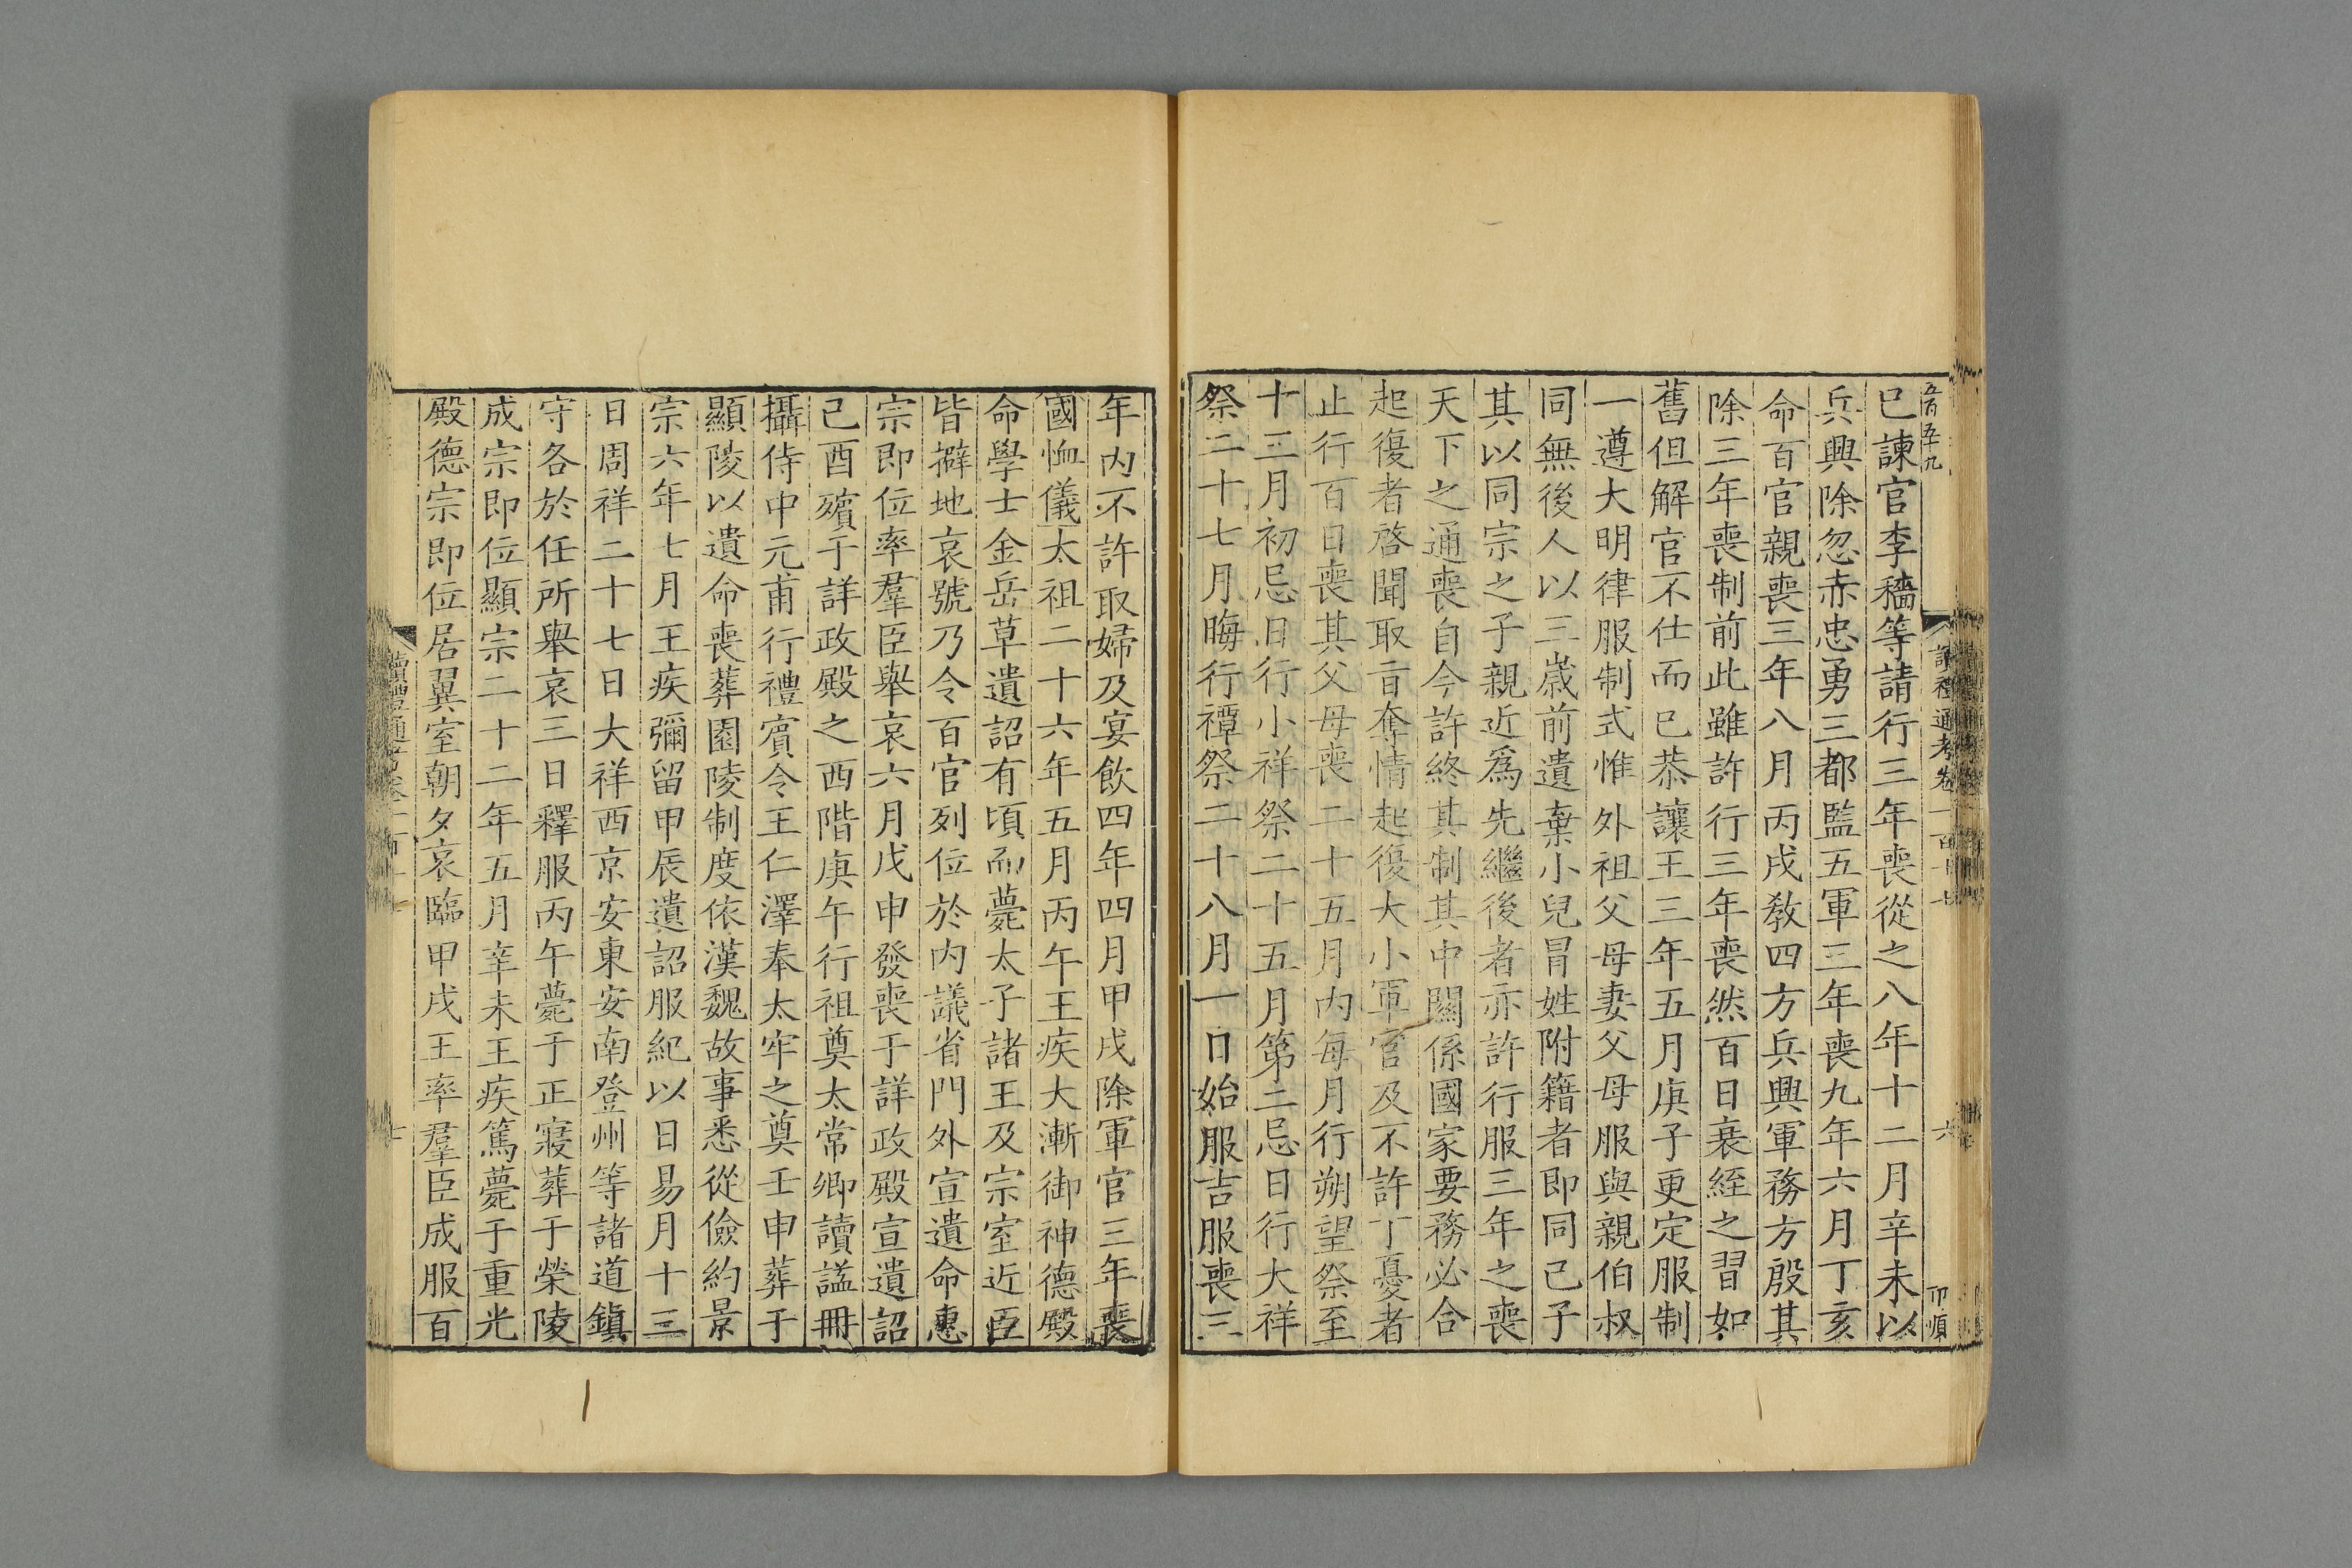 五百五十九
讀禮通考卷一百十七
六
卬順
已諫官李穡等請行三年喪從之八年十二月辛未以
兵興除忽赤忠勇三都監五軍三年喪九年六月丁亥
命百官親喪三年八月丙戌教四方兵興軍務方殷其
除三年喪制前此雖許行三年喪然百日衰絰之習如
舊但解官不仕而已恭讓王三年五月庚子更定服制
一遵大明律服制式惟外祖父母妻父母服與親伯叔
同無後人以三歲前遺棄小兒冒姓附籍者即同己子
其以同宗之子親近爲先繼後者亦許行服三年之喪
天下之通喪自今許終其制其中關係國家要務必合
起復者啓聞取旨奪情起復大小軍官及不許丁憂者
止行百日喪其父母喪二十五月內每月行朔望祭至
十三月初忌日行小祥祭二十五月第二忌日行大祥
祭二十七月晦行禫祭二十八月一日始服吉服喪三
年內不許取婦及宴飲四年四月甲戌除軍官三年喪
國恤儀太祖二十六年五月丙午王疾大漸御神德殿
命學士金岳草遺詔有頃而薨太子諸王及宗室近臣
皆擗地哀號乃令百官列位於內議省門外宣遺命惠
宗即位率羣臣舉哀六月戊申發喪于詳政殿宣遺詔
己酉殯于詳政殿之西階庚午行祖奠太常卿讀謚冊
攝侍中元甫行禮賓令王仁澤奉太牢之奠壬申葬于
顯陵以遺命喪葬園陵制度依漢魏故事悉從儉約景
宗六年七月王疾彌留甲辰遺詔服紀以日易月十三
日周祥二十七日大祥西京安東安南登州等諸道鎮
守各於任所舉哀三日釋服丙午薨于正寢葬于榮陵
成宗即位顯宗二十二年五月辛未王疾篤薨于重光
殿德宗即位居翼室朝夕哀臨甲戌王率羣臣成服百
讀禮通考卷一百十